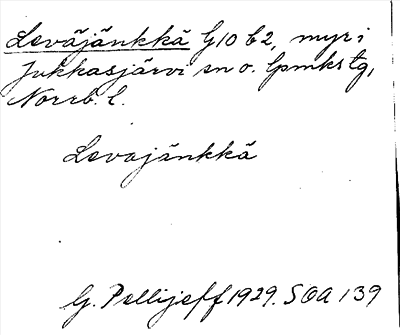 Leväjänkkä G10 b2, myr i
Jukkasjärvi sn o. lpmks tg,
Norrb. l.
Levajänkkä
G. Pellijeff 1929. SOA 139